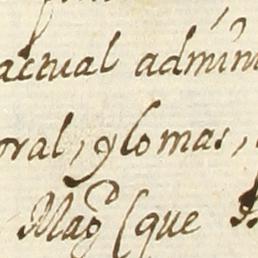 actual admin
oral, y lo mas,
Mag^d (que